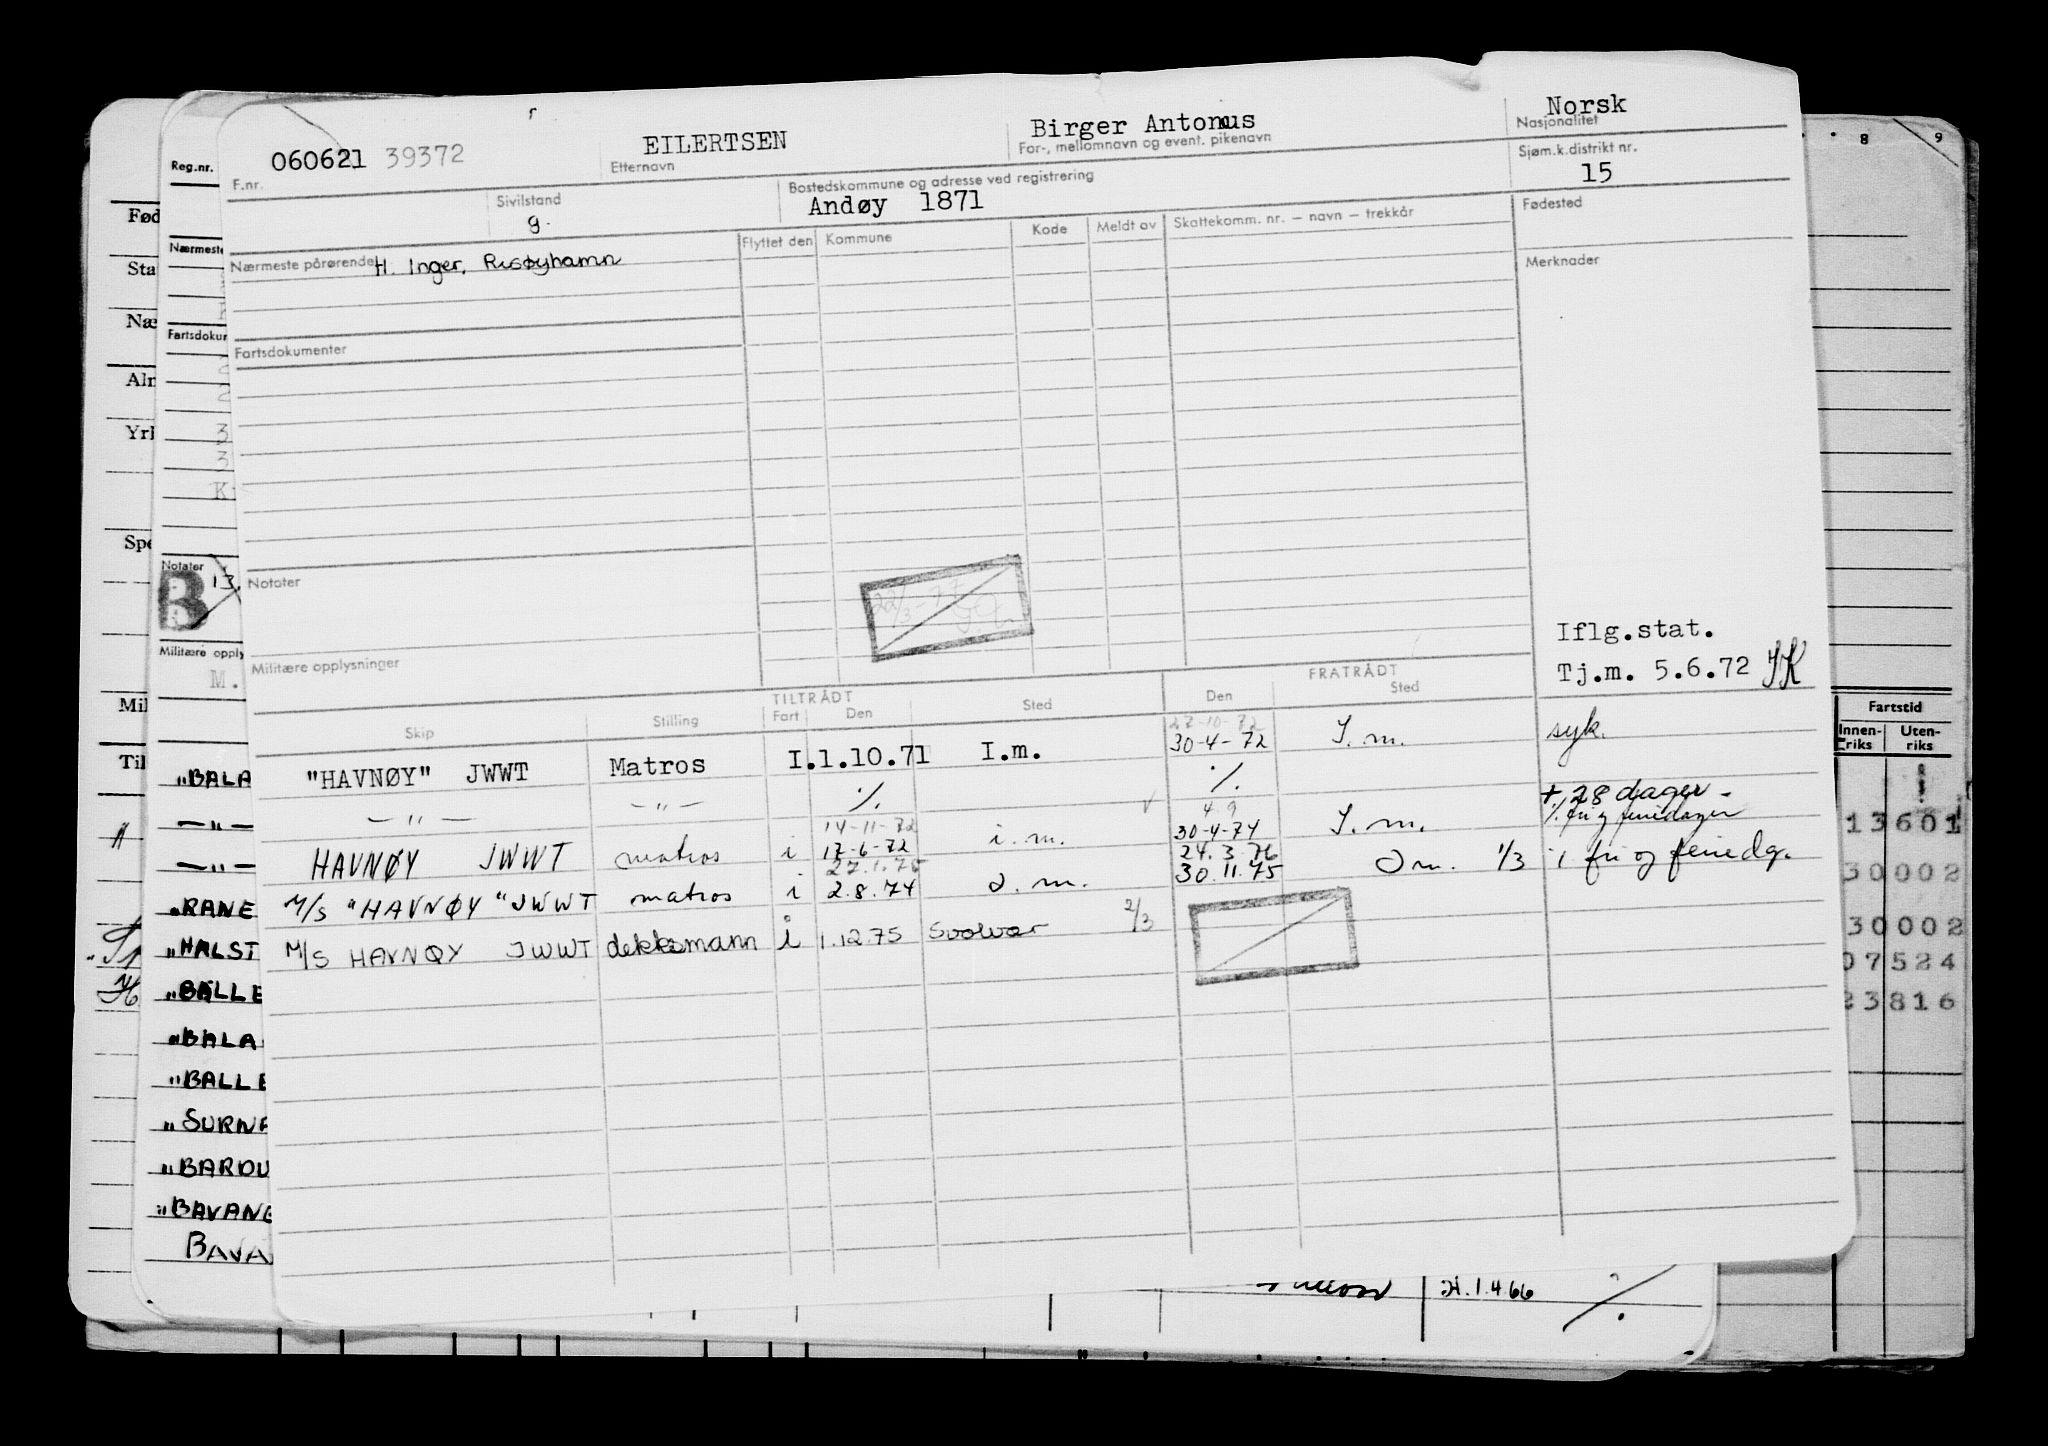 Norsk
Nasjonalitet
EILERTSEN
Etternavn
Birger Antonius
For-, mellomnavn og event. pikenavn
060621 39372
F.nr.
Reg.nr.
Sjøm.k.distrikt nr.
15
Sivilstand
g.
Bostedskommune og adresse ved registrering
Andøy 1871
Fødested
Nærmeste pårørende H. Inger, Risøyhamn
Flyttet den
Kommune
Kode
Meldt av
Skattekomm. nr. — navn — trekkår
Merknader
Fartsdokumenter
Notater
Militære opplysninger
Iflg.stat.
Tj.m. 5.6.72 JK
TILTRÅDT
FRATRÅDT
Skip
Stilling
Fart
Den
Sted
Den
Sted
"HAVNØY" JWWT Matros I.1.10.71 I.m. 27-10-72 30-4-72 I.m. syk.
—"— —"— ·/. ·/. + 28 dager
HAVNØY JWWT matros i 14-11-72 17-6-72 i.m. 4 9 30-4-74 I.m. ·/. fri og feriedager
M/S "HAVNØY" JWWT matros i 27.1.75 2.8.74 I.m. 24.3.76 30.11.75 I m. 1/3 i fri og feriedg.
M/S HAVNØY JWWT dekksmann i 1.12.75 Svolvær 2/3
Fød
Nærmeste
Sta
Næ
Fartsdokum
Alm
Yrk
Spe
Notater
B 13.
Militære opply
M.
Mil
Til
"BALA
—"—
—"—
"RANE
"HALST
"BALLE
"BALA
"BALLE
"SURNA
"BARDU
"BAVANG
BAVA
8 9
Fartstid
Innenriks
Utenriks
13601
30002
30002
07524
23816
H.1.4.66 ·/.